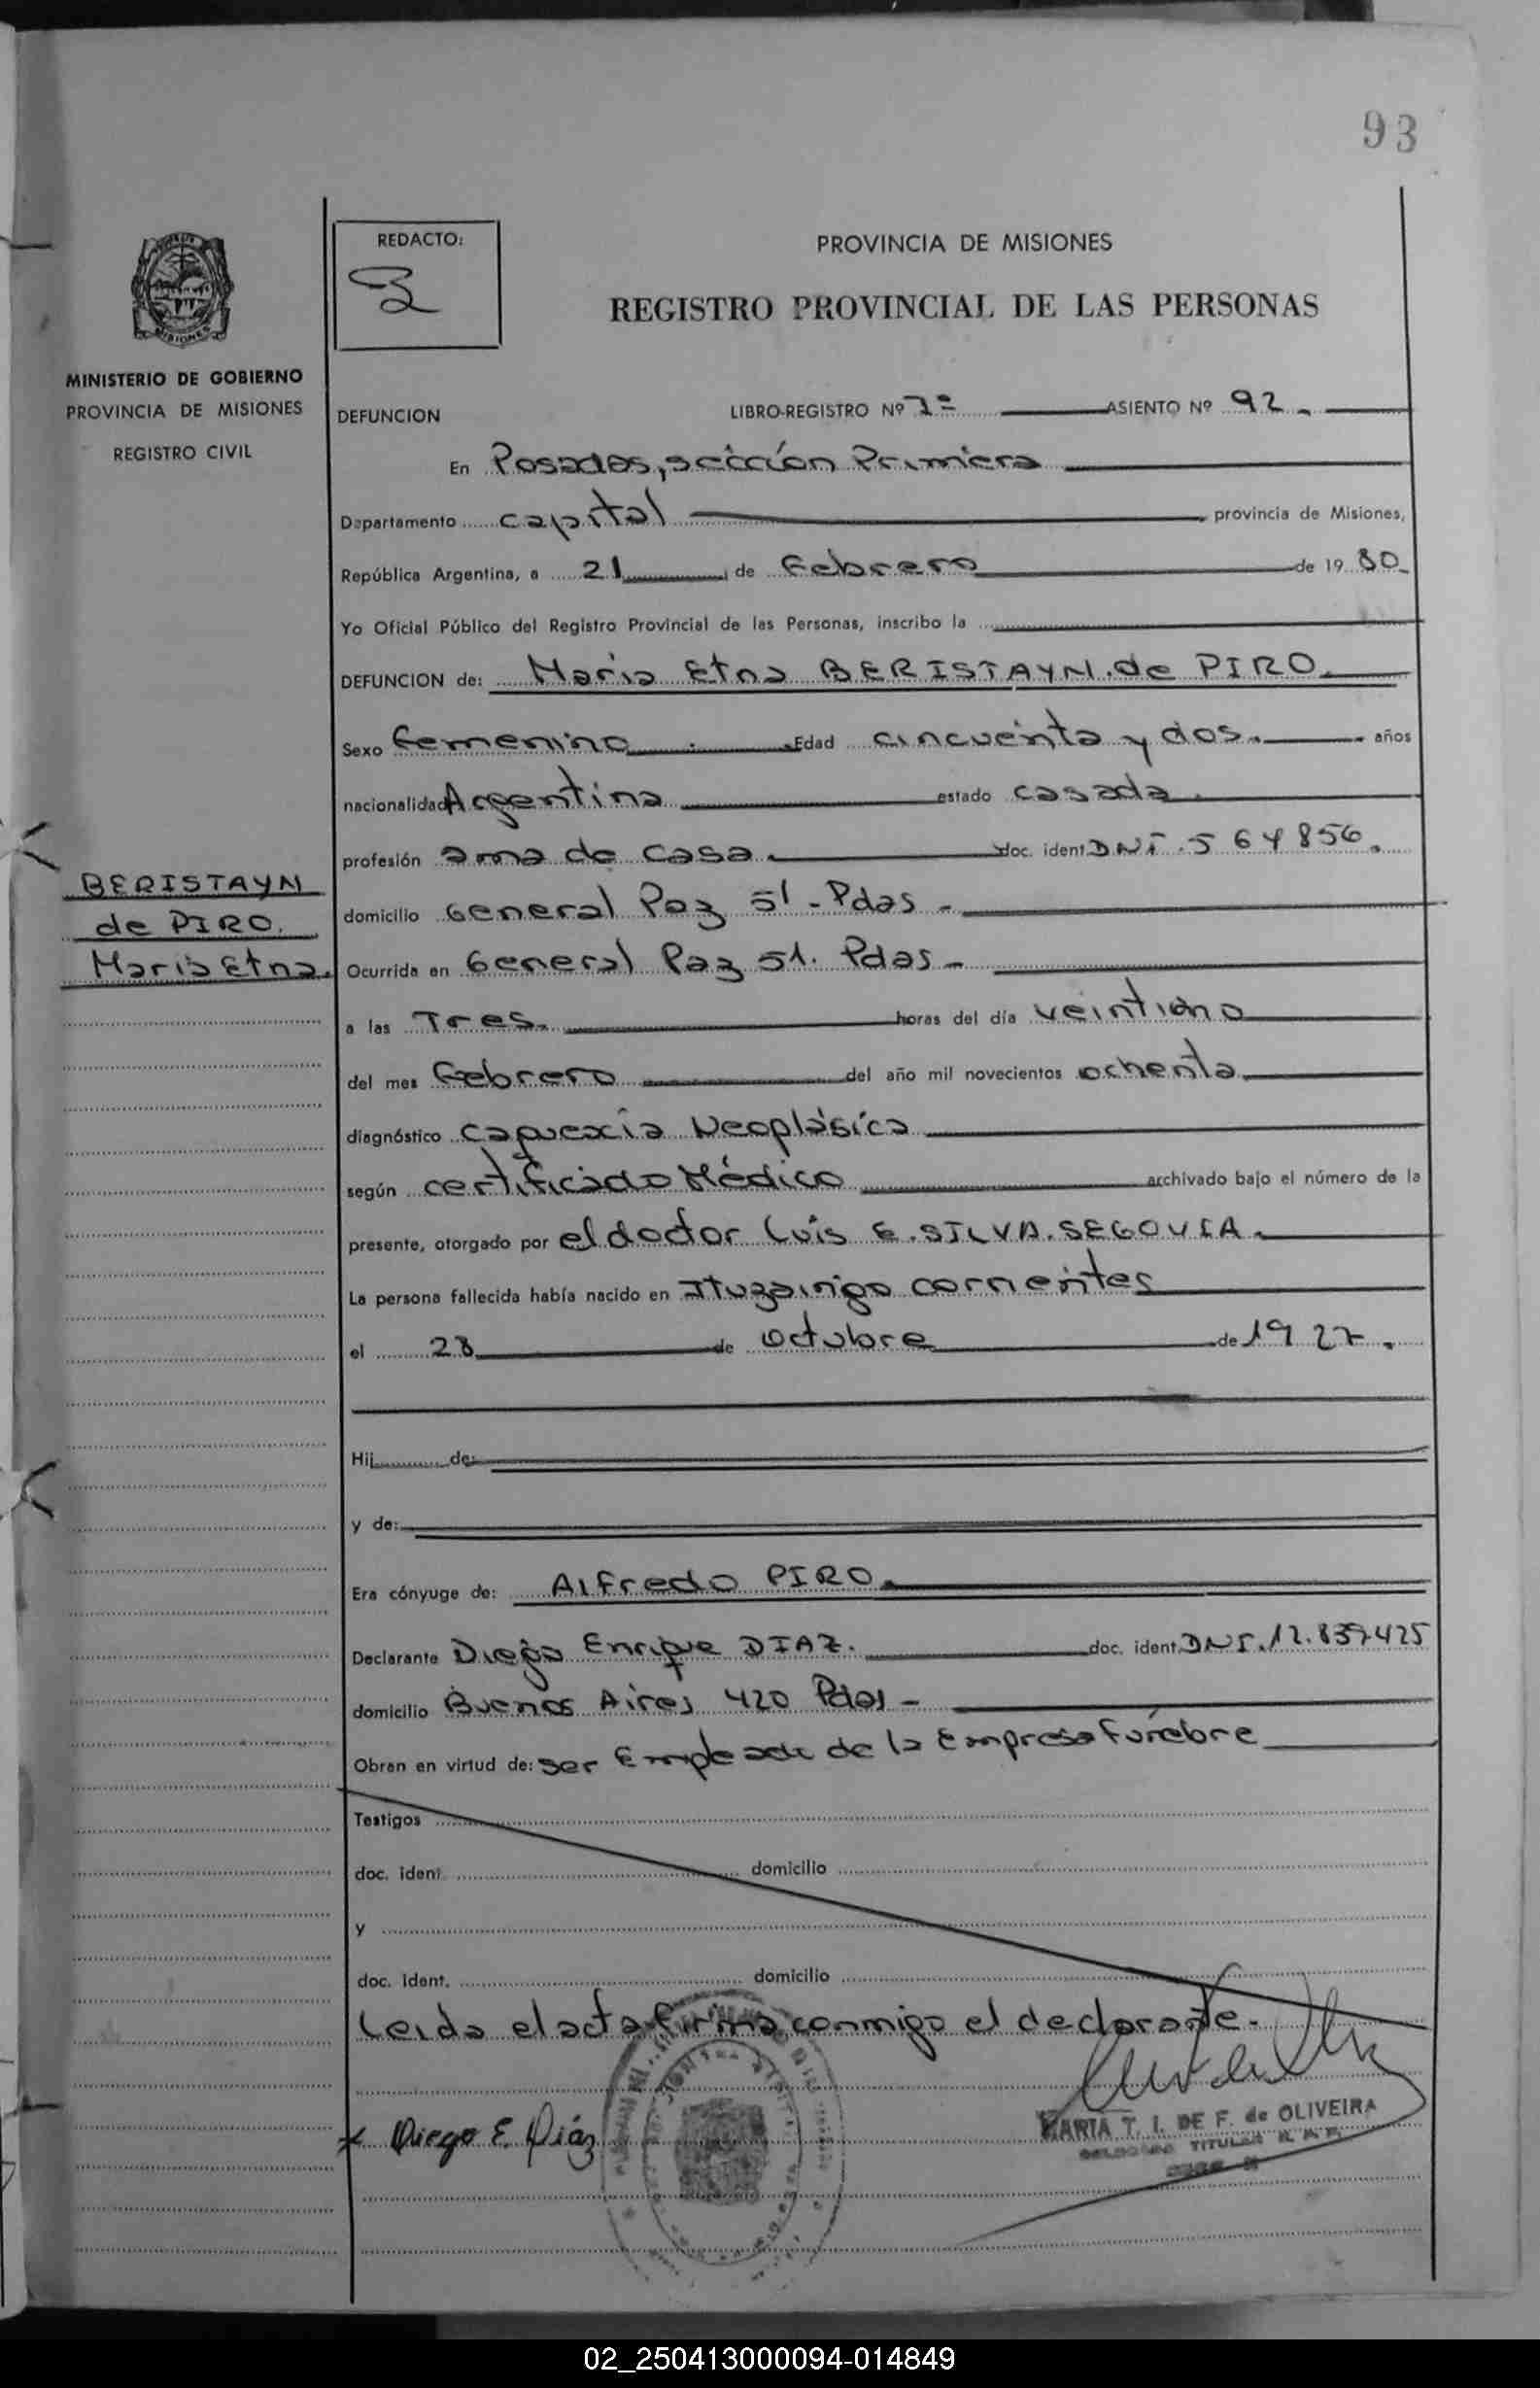 93
REDACTO:
PROVINCIA DE MISIONES
REGISTRO PROVINCIAL DE LAS PERSONAS
MISIONES
MINISTERIO DE GOBIERNO
PROVINCIA DE MISIONES
REGISTRO CIVIL
DEFUNCION LIBRO-REGISTRO Nº 1º ASIENTO Nº 92.
En Posadas, sección Primera
Departamento capital, provincia de Misiones,
República Argentina, a 21 de Febrero de 1980
Yo Oficial Público del Registro Provincial de las Personas, inscribo la
DEFUNCION de: Maria Etna BERISTAYN. de PIRO.
Sexo femenino Edad cincuenta y dos. años
nacionalidad Argentina estado casada.
profesión ama de casa. doc. ident DNI. 5 64 856.
domicilio General Paz 51 - Pdas -
BERISTAYN
de PIRO.
Maria Etna.
Ocurrida en General Paz 51. Pdas -
a las Tres. horas del día veintiuno
del mes Febrero del año mil novecientos ochenta
diagnóstico Caquexia Neoplásica
según certificado Médico archivado bajo el número de la
presente, otorgado por el doctor Luis E. SILVA. SEGOVIA.
La persona fallecida había nacido en Ituzaingo Corrientes
el 28 de octubre de 1927.
Hij de:
y de:
Era cónyuge de: Alfredo PIRO.
Declarante Diego Enrique DIAZ. doc. ident. DNI. 12.837.425
domicilio Buenos Aires 420 Pdas -
Obran en virtud de: ser Empleado de la Empresa Fúnebre
Testigos
doc. ident. domicilio
y
doc. ident. domicilio
Leida el acta firma conmigo el declarante.
x Diego E. Diáz
MARIA T. I. DE F. de OLIVEIRA
TITULAR
02_250413000094-014849